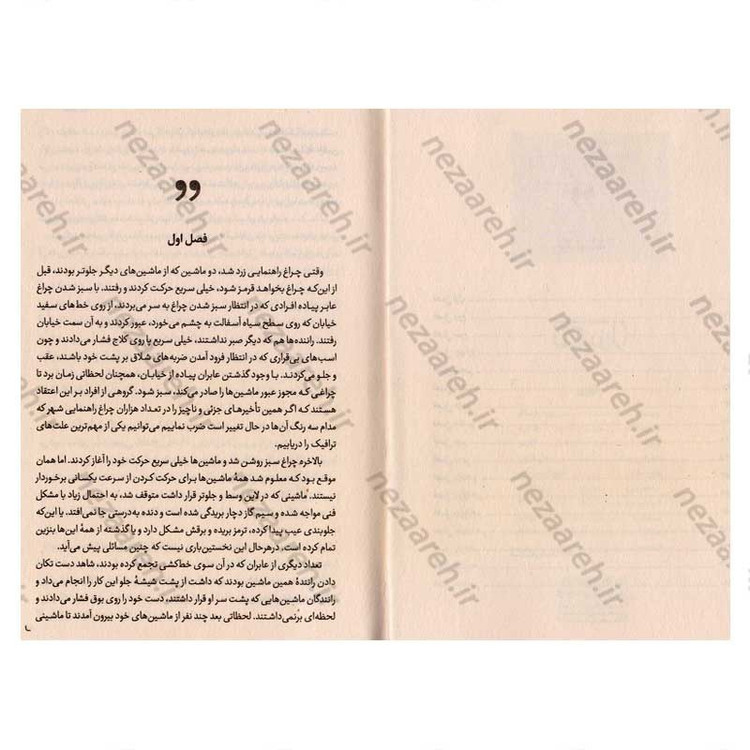 فصل اول
وقتی چراغ راهنمایی زرد شد، دو ماشین که از ماشین‌های دیگر جلوتر بودند، قبل
از این‌که چراغ بخواهد قرمز شود، خیلی سریع حرکت کردند و رفتند. با سبز شدن چراغ
عابر پیاده افرادی که در انتظار سبز شدن چراغ به سر می‌بردند، از روی خط‌های سفید
خیابان که روی سطح سیاه آسفالت به چشم می‌خورد، عبور کردند و به آن سمت خیابان
رفتند. راننده‌ها هم که دیگر صبر نداشتند، خیلی سریع پا روی کلاج فشار می‌دادند و چون
اسب‌های بی‌قراری که در انتظار فرود آمدن ضربه‌های شلاق بر پشت خود باشند، عقب
و جلو می‌کردند. با وجود گذشتن عابران پیاده از خیابان، همچنان لحظاتی زمان برد تا
چراغی که مجوز عبور ماشین‌ها را صادر می‌کند، سبز شود. گروهی از افراد بر این اعتقاد
هستند که اگر همین تأخیرهای جزئی و ناچیز را در تعداد هزاران چراغ راهنمایی شهر که
مدام سه رنگ آن‌ها در حال تغییر است ضرب نماییم می‌توانیم یکی از مهم‌ترین علت‌های
ترافیک را دریابیم.
بالاخره چراغ سبز روشن شد و ماشین‌ها خیلی سریع حرکت خود را آغاز کردند. اما همان
موقع بود که معلوم شد همهٔ ماشین‌ها برای حرکت کردن از سرعت یکسانی برخوردار
نیستند. ماشینی که در لاین وسط و جلوتر قرار داشت متوقف شد، به احتمال زیاد با مشکل
فنی مواجه شده و سیم گاز دچار بریدگی شده است و دنده به‌درستی جا نمی‌افتد. یا این‌که
جلوبندی عیب پیدا کرده، ترمز بریده و برقش مشکل دارد و یا گذشته از همهٔ این‌ها بنزین
تمام کرده است. درهرحال این نخستین‌باری نیست که چنین مسائلی پیش می‌آید.
تعداد دیگری از عابران که در آن سوی خط‌کشی تجمع کرده بودند، شاهد دست تکان
دادن رانندهٔ همین ماشین بودند که داشت از پشت شیشهٔ جلو این کار را انجام می‌داد و
رانندگان ماشین‌هایی که پشت سر او قرار داشتند، دست خود را روی بوق فشار می‌دادند و
لحظه‌ای برنمی‌داشتند. لحظاتی بعد چند نفر از ماشین‌های خود بیرون آمدند تا ماشینی
nezaareh.ir
nezaareh.ir
nezaareh.ir
nezaareh.ir
nezaareh.ir
nezaareh.ir
nezaareh.ir
nezaareh.ir